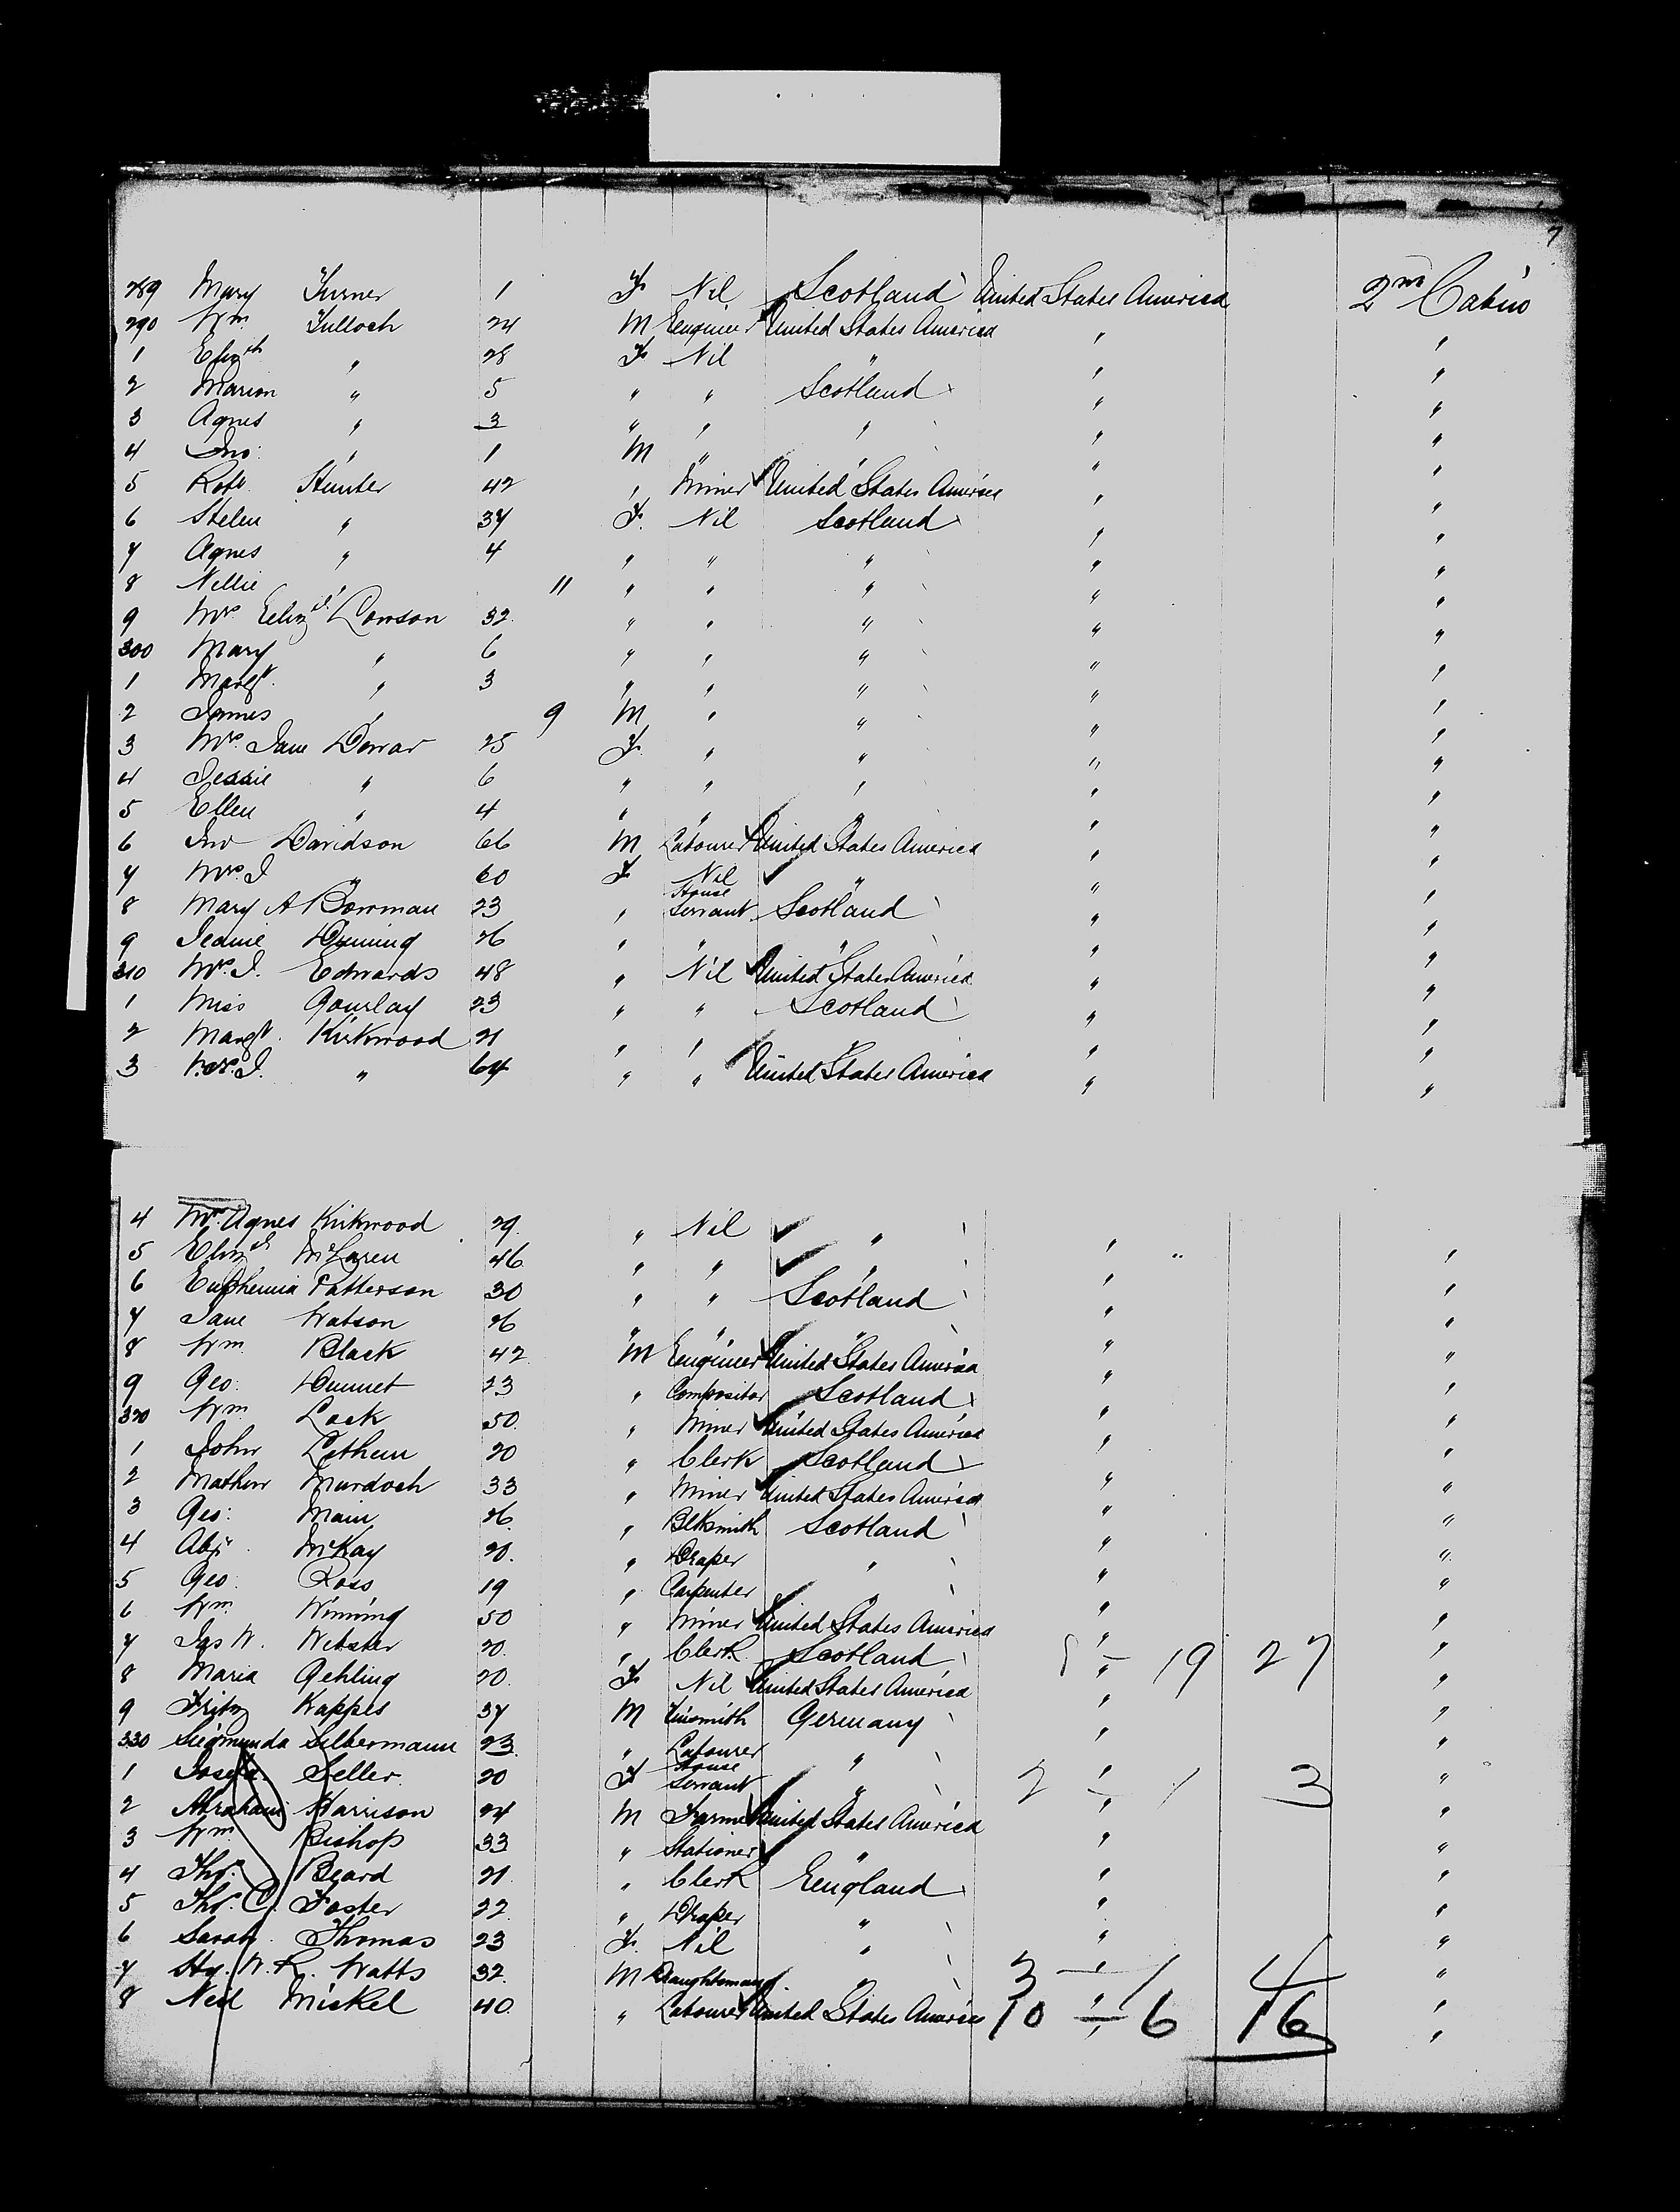 7
289 Mary Turner 1 F Nil Scotland United States America 2nd Cabin
290 Wm Tulloch 24 M Engineer United States America " "
1 Elizth " 28 F Nil " " "
2 Marion " 5 " " Scotland " "
3 Agnes " 3 " " " " "
4 Jno " 1 M " " " "
5 Robt Hunter 42 " Miner United States America " "
6 Helen " 37 F Nil Scotland " "
7 Agnes " 4 " " " " "
8 Nellie " 11 " " " " "
9 Mrs Elizth Lawson 32 " " " " "
300 Mary " 6 " " " " "
1 Margt " 3 " " " " "
2 James " 9 M " " " "
3 Mrs. Jane Dewar 25 F " " " "
4 Jessie " 6 " " " " "
5 Ellen " 4 " " " " "
6 Jno Davidson 66 M Labourer United States America " "
7 Mrs. J. " 60 F Nil " " "
8 Mary A Bowman 23 " House Servant Scotland " "
9 Jeanie 26 " " " " "
310 Mrs. J. Edwards 48 " Nil United States America " "
1 Miss Gourlay 23 " " Scotland " "
2 Margt. Kirkwood 21 " " " " "
3 Mrs. J. " 64 " " United States America " "
4 Mrs. Agnes Kirkwood 29 " Nil " " "
5 Elizth McLaren 46 " " " " "
6 Euphemia Patterson 30 " " Scotland " "
7 Jane Watson 26 " " " " "
8 Wm Black 42 M Engineer United States America " "
9 Geo: Dunnet 23 " Compositor Scotland " "
320 Wm Lack 50 " Miner United States America " "
1 John Lethem 20 " Clerk Scotland " "
2 Mathew Murdoch 33 " Miner United States America " "
3 Geo: Main 26 " Blksmith Scotland " "
4 Alxr McKay 20 " Draper " " "
5 Geo Ross 19 " Carpenter " " "
6 Wm Winning 50 " Miner United States America " "
7 Jas W. Webster 20 " Clerk Scotland " 19 27 "
8 Maria Gehling 20 F Nil United States America " "
9 Fritz Kappes 37 M Tinsmith Germany " "
330 Siegmunda Silbermann 23 " Labourer " " "
1 Josefa Seller 20 F House Servant " 2 - 1 3 "
2 Abraham Harrison 24 M Farmer United States America " "
3 Wm Bishop 33 " Stationer " " "
4 Thos Beard 21 " Clerk England " "
5 Thos. C. Foster 22 " Draper " " "
6 Sarah Thomas 23 F. Nil " " "
7 Hy. W. R. Watts 32 M Draughtsman " 3 - 1 4 "
8 Neil Miskel 40 " Labourer United States America 10 - 6 16 "